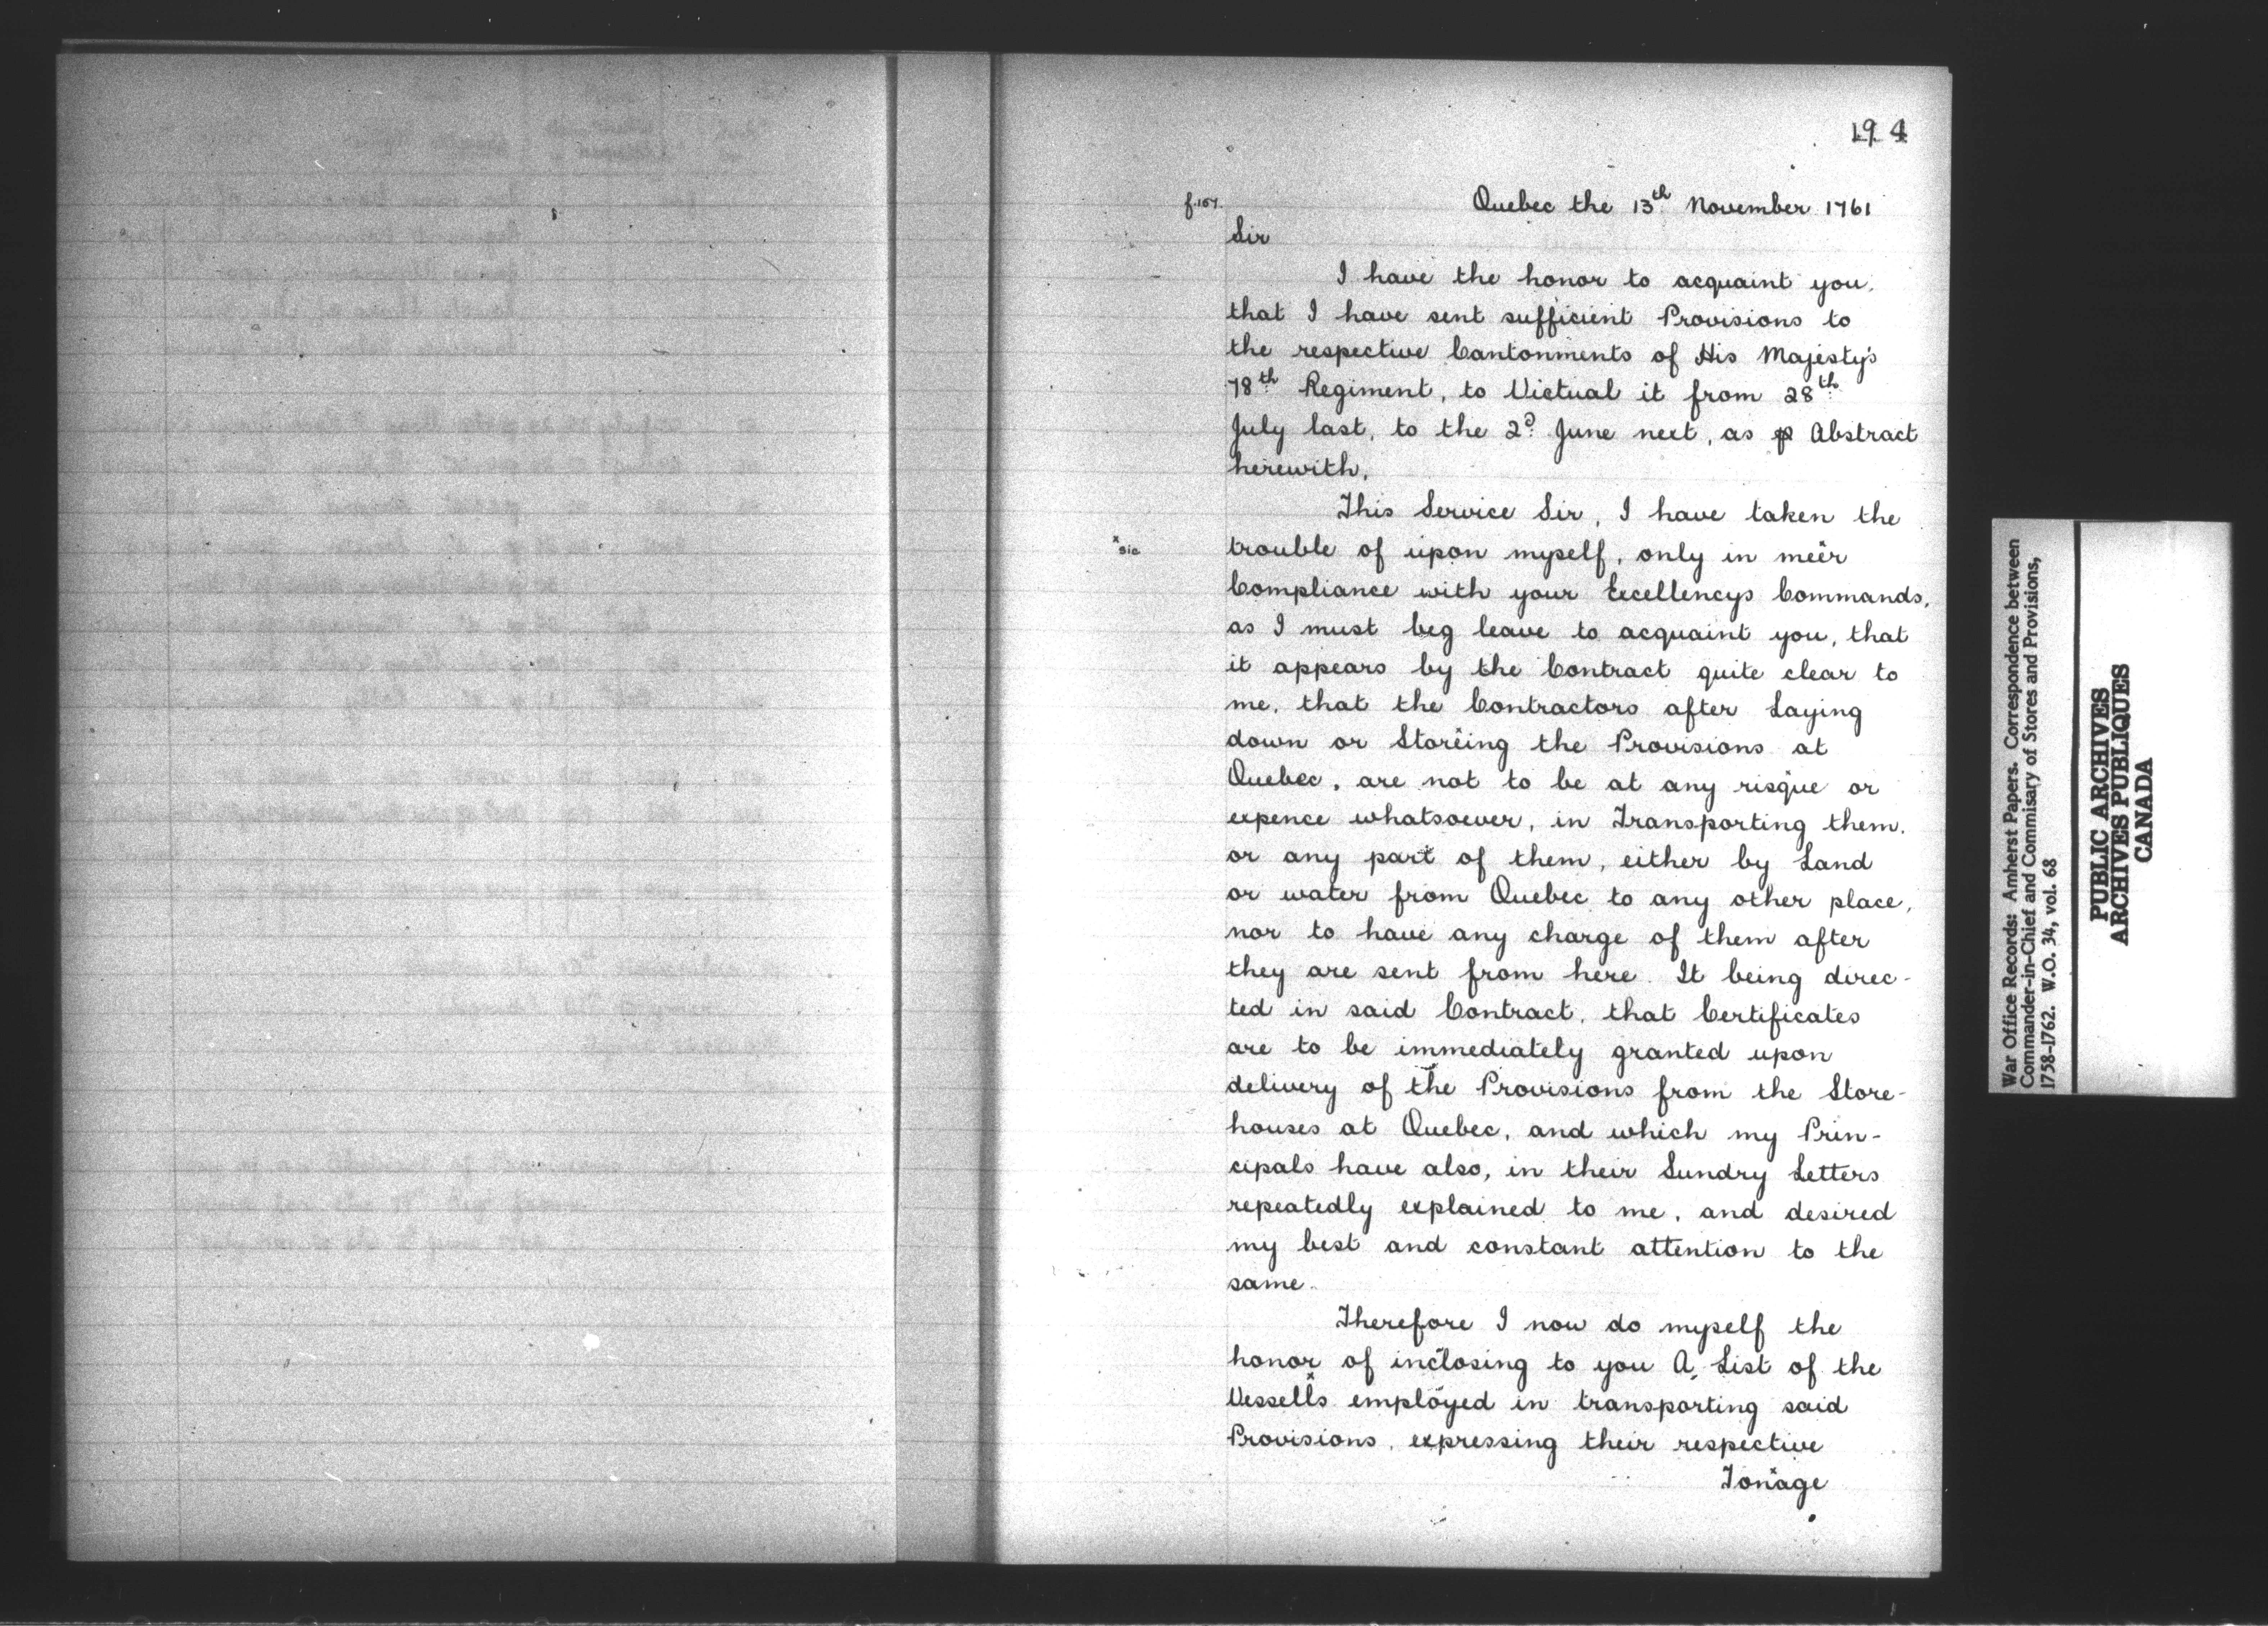 194
f.157.
Quebec the 13th November 1761
Sir
I have the honor to acquaint you,
that I have sent sufficient Provisions to
the respective Cantonments of His Majesty's
78th Regiment, to Victual it from 28th
July last, to the 2d June next, as ⅌ Abstract
herewith.
This Service Sir, I have taken the
xsic
trouble of upon myself, only in meer
Compliance with your Excellencys Commands,
as I must beg leave to acquaint you, that
it appears by the Contract quite clear to
me, that the Contractors after Laying
down or Storeing the Provisions at
Quebec, are not to be at any risque or
expence whatsoever, in Transporting them,
or any part of them, either by Land
or water from Quebec to any other place,
nor to have any charge of them after
they are sent from here. It being direc-
ted in said Contract, that Certificates
are to be immediately granted upon
delivery of the Provisions from the Store-
houses at Quebec, and which my Prin-
cipals have also, in their Sundry Letters
repeatedly explained to me, and desired
my best and constant attention to the
same.
Therefore I now do myself the
honor of inclosing to you A, List of the
Vessells employed in transporting said
Provisions, expressing their respective
Tonage
War Office Records: Amherst Papers. Correspondence between
Commander-in-Chief and Commisary of Stores and Provisions,
1758-1762. W.O. 34, vol. 68
PUBLIC ARCHIVES
ARCHIVES PUBLIQUES
CANADA